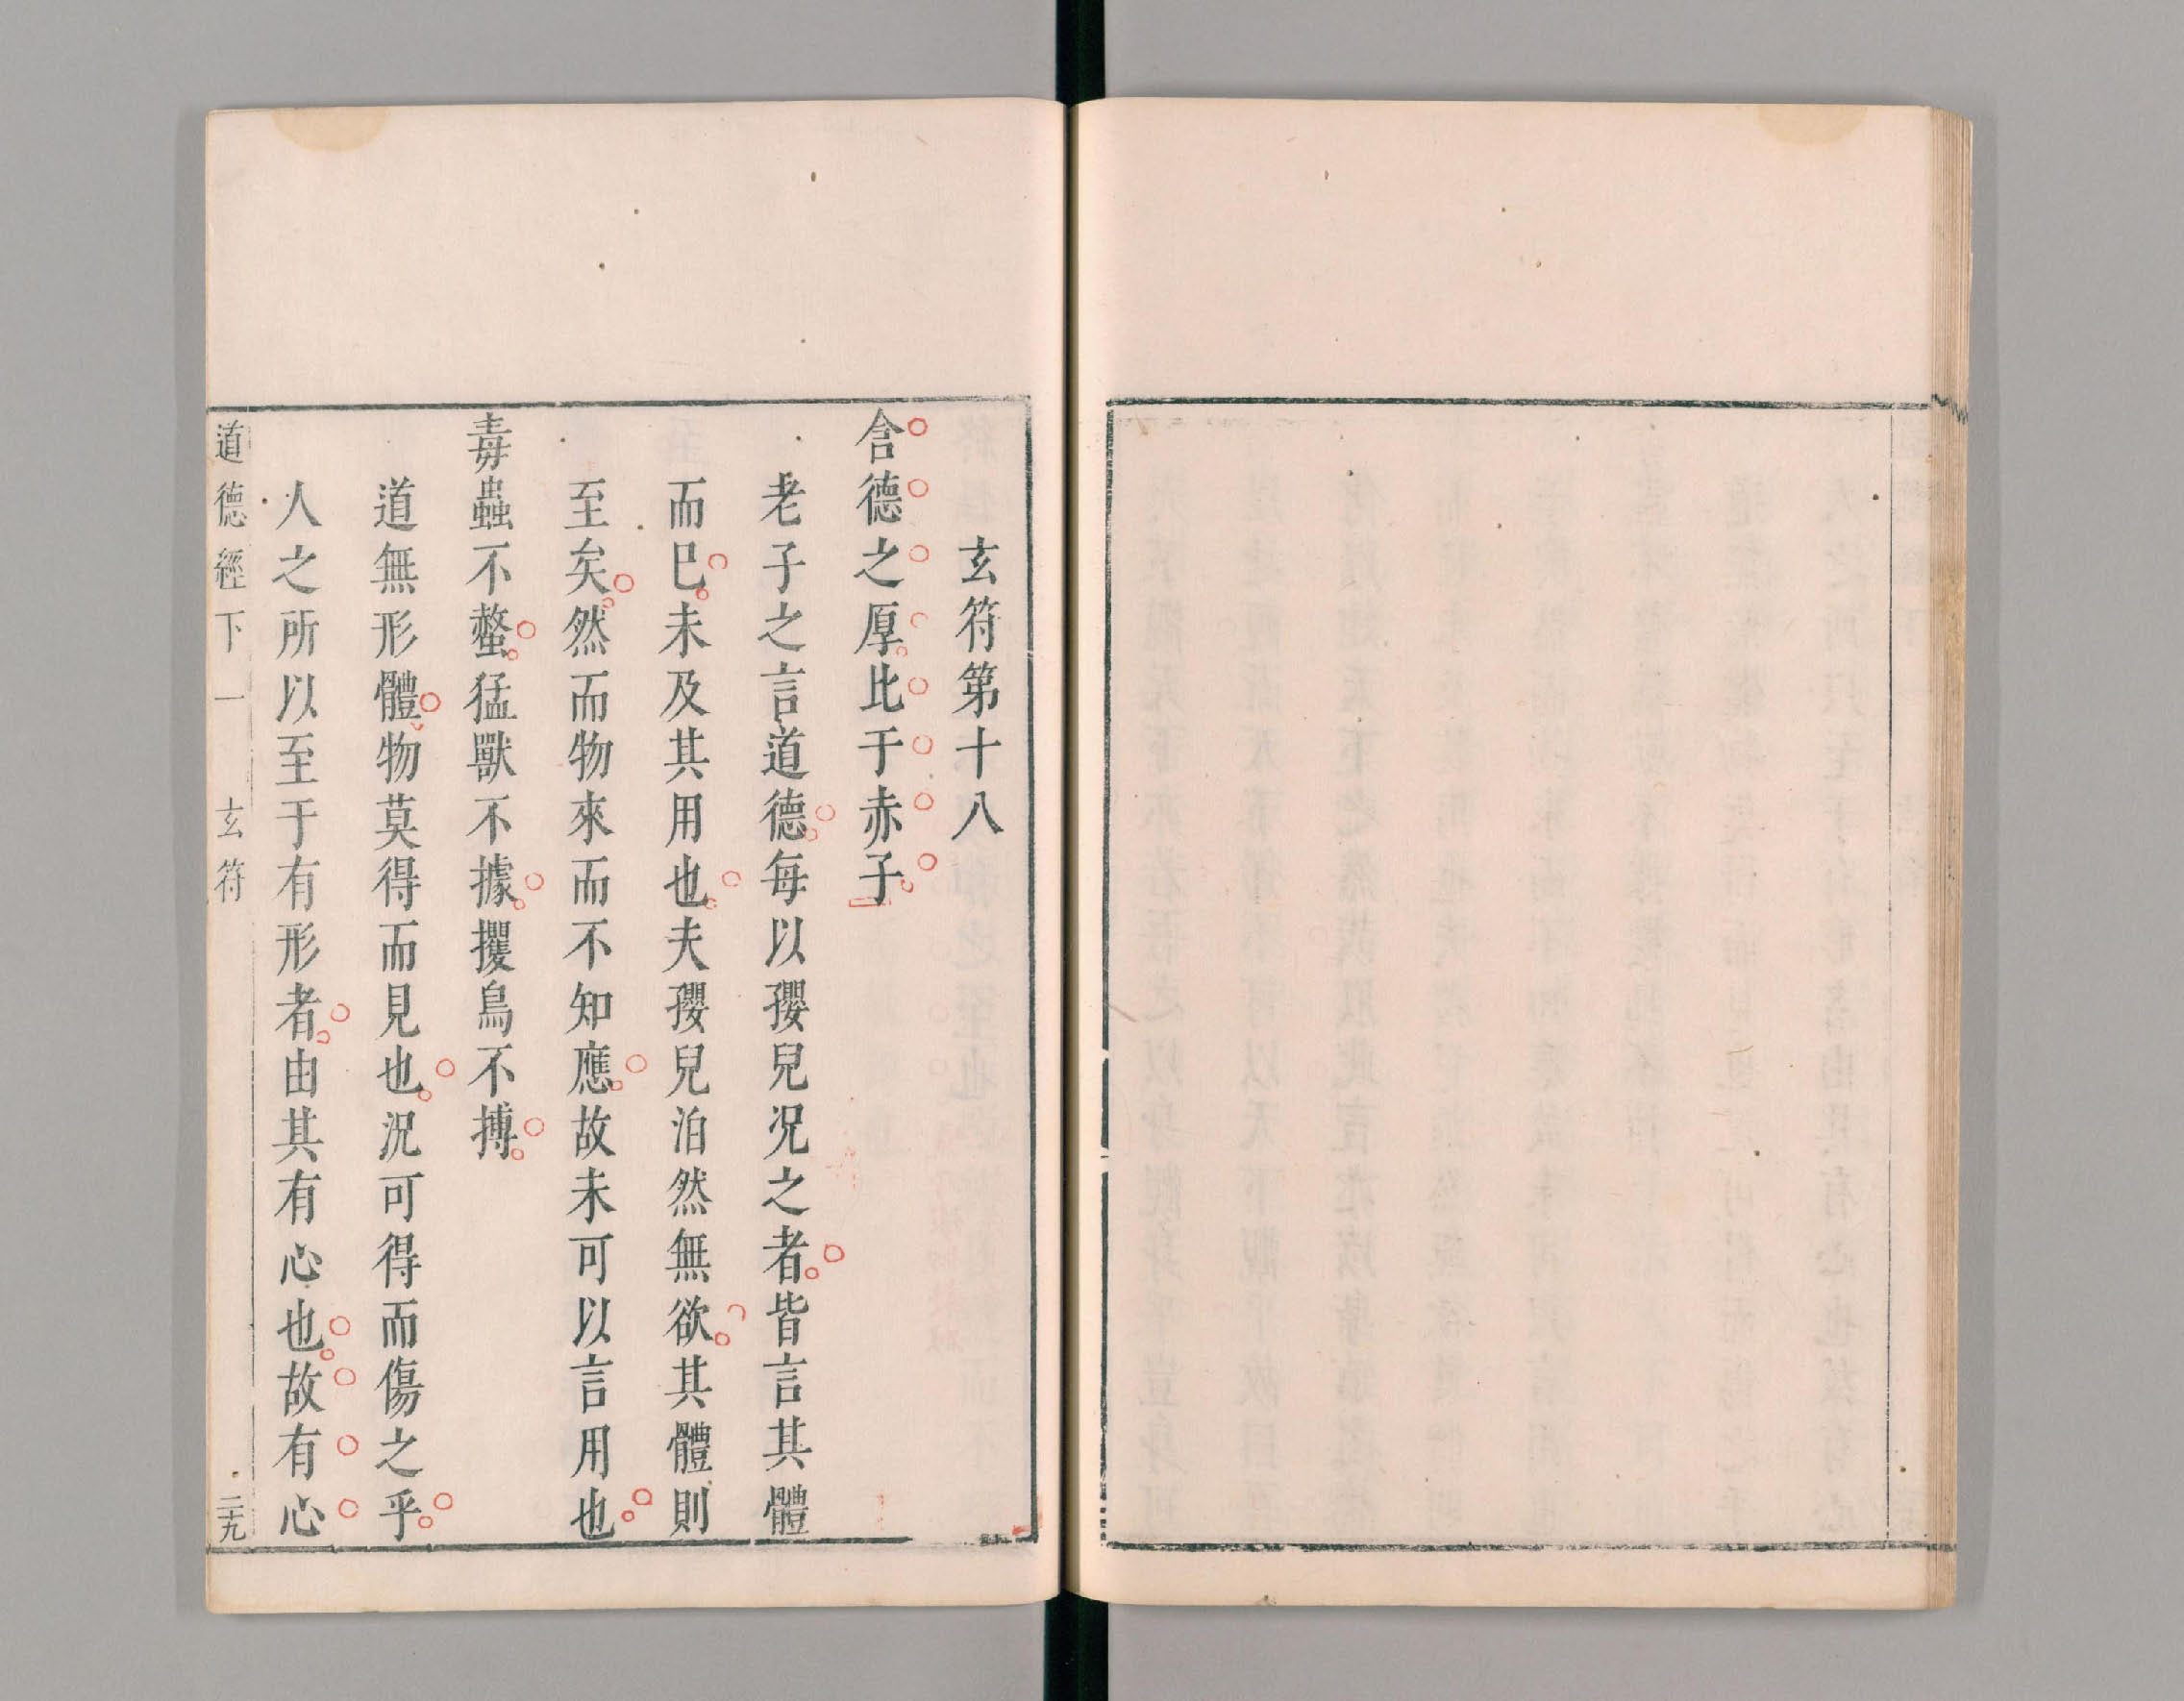 玄符第十八
含德之厚比于赤子
老子之言道德每以孾兒况之者皆言其體
而已未及其用也夫孾兒泊然無欲其體則
至矣然而物來而不知應故未可以言用也
毒蟲不螫猛獸不據攫鳥不搏
道無形體物莫得而見也況可得而傷之乎
人之所以至于有形者由其有心也故有心
道德經下一 玄符 二十九